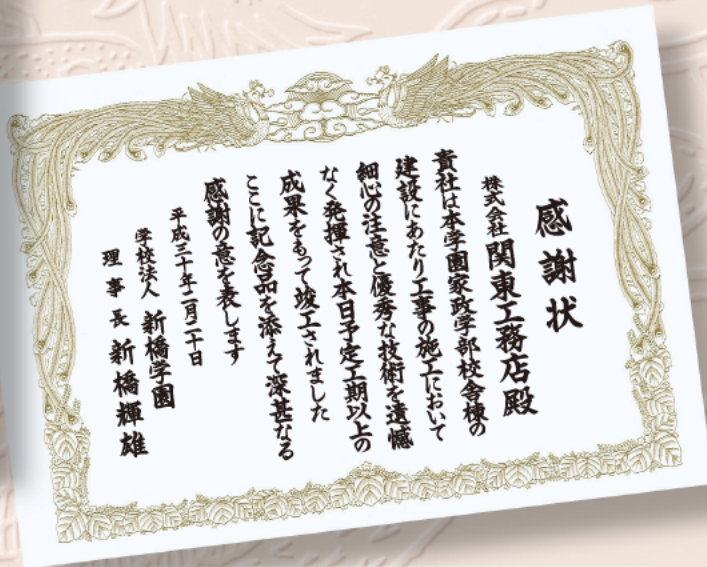 感謝状
株式会社 関東工務店殿
貴社は本学園家政学部校舎棟の
建設にあたり工事の施工において
細心の注意と優秀な技術を遺憾
なく発揮され本日予定工期以上の
成果をもって竣工されました
ここに記念品を添えて深甚なる
感謝の意を表します
平成三十年二月二十日
学校法人 新橋学園
理事長 新橋輝雄